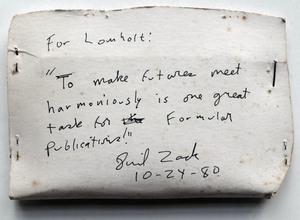 For Lomholt:
"To make futures meet
harmoniously is one great
task for Formular
Publications!"
Zack
10-24-80